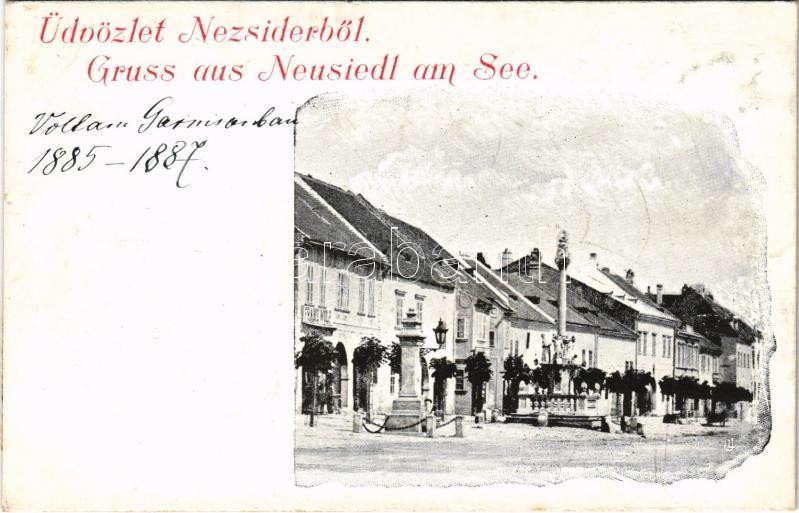 Üdvözlet Nezsiderből.
Gruss aus Neusiedl am See.
Voltam Garnisonban
1885 – 1887.
darabanth